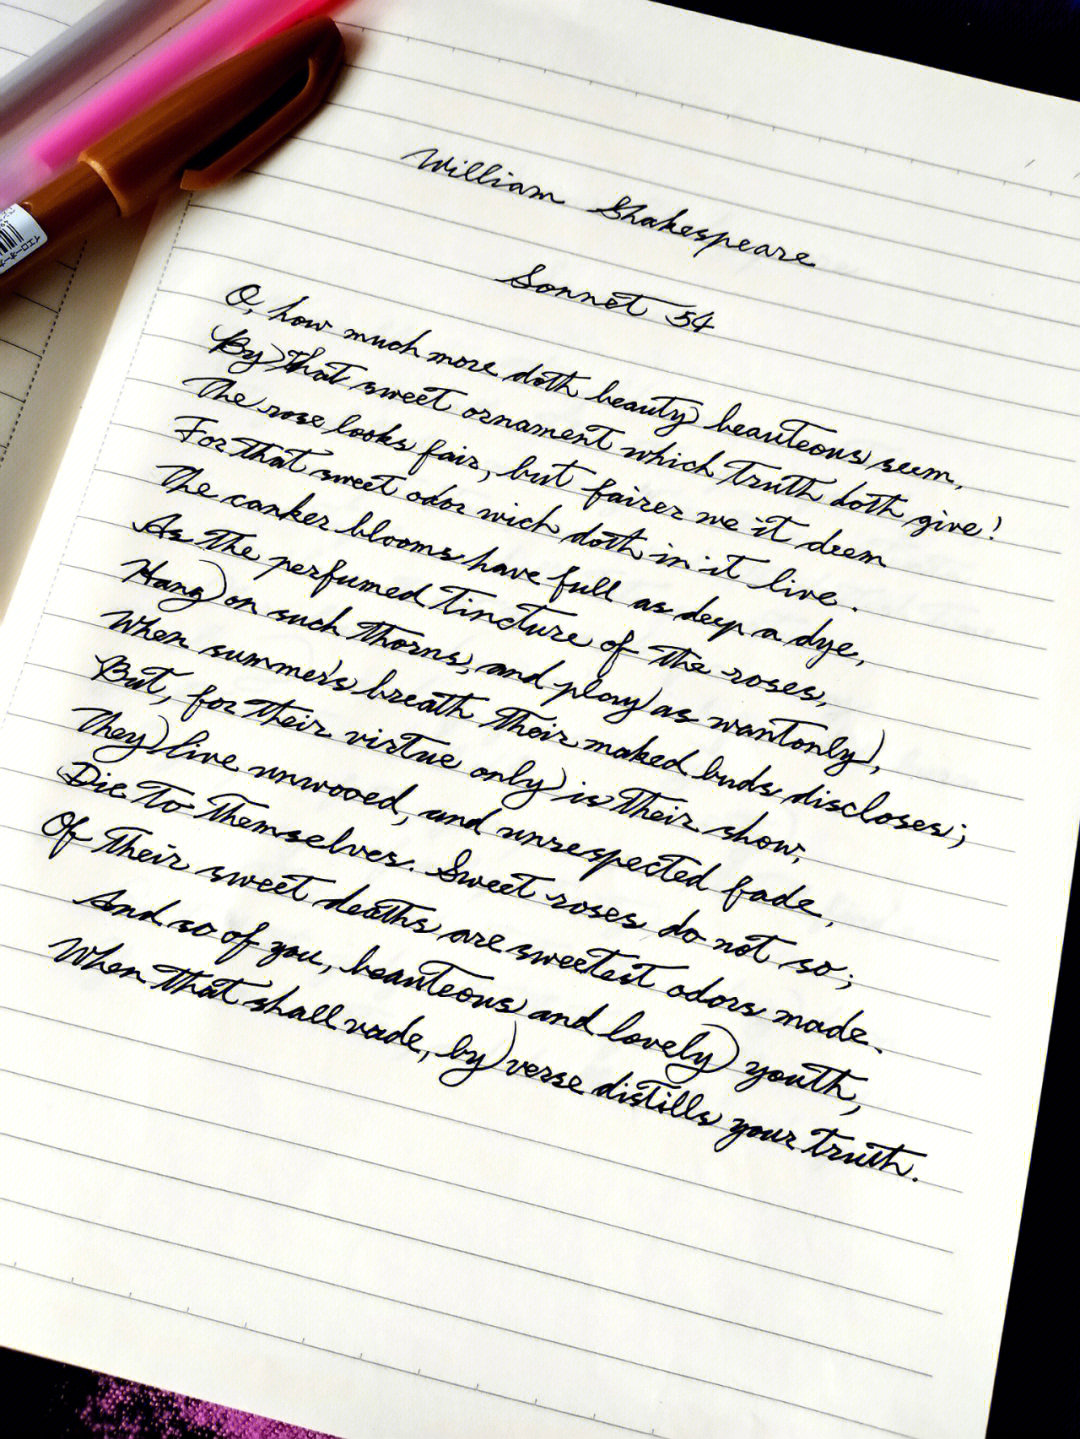 William Shakespeare
Sonnet 54
O, how much more doth beauty beauteous seem,
By that sweet ornament which truth doth give!
The rose looks fair, but fairer we it deem
For that sweet odor wich doth in it live.
The canker blooms have full as deep a dye,
As the perfumed tincture of the roses,
Hang on such thorns, and play as wantonly,
When summer's breath their maked buds discloses;
But, for their virtue only is their show,
They live unwooed, and unrespected fade,
Die to themselves. Sweet roses do not so;
Of their sweet deaths are sweetest odors made.
And so of you, beauteous and lovely youth,
When that shall vade, by verse distills your truth.